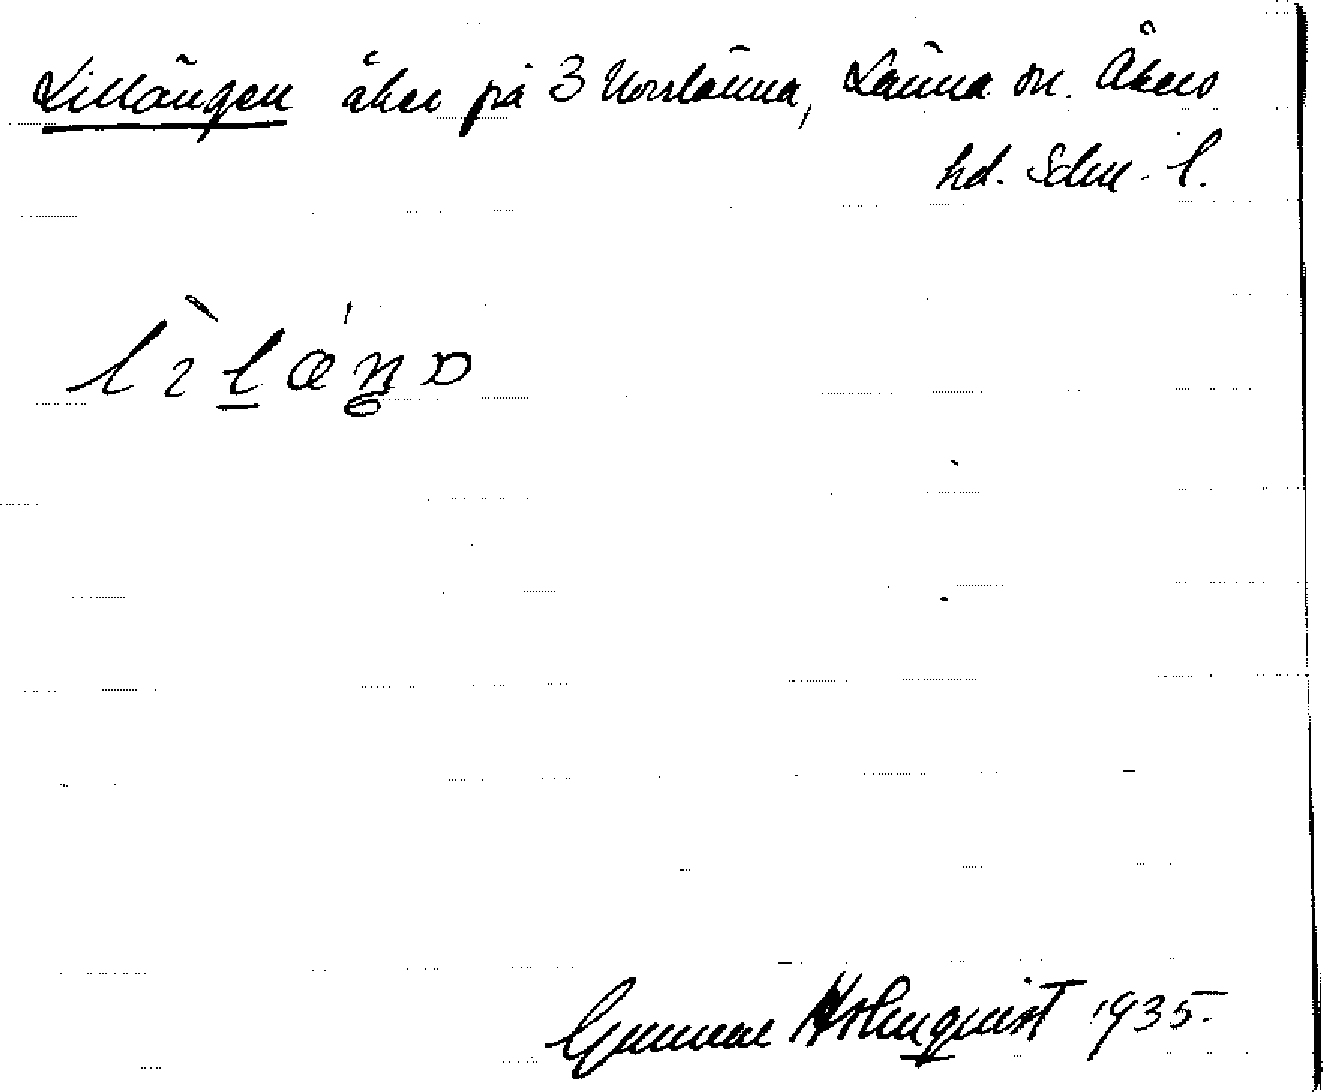 Lillängen åker på 3 Norrlänna, Länna sn. Åkers
hd. Söml. l.
Gunnar Holmquist 1935.